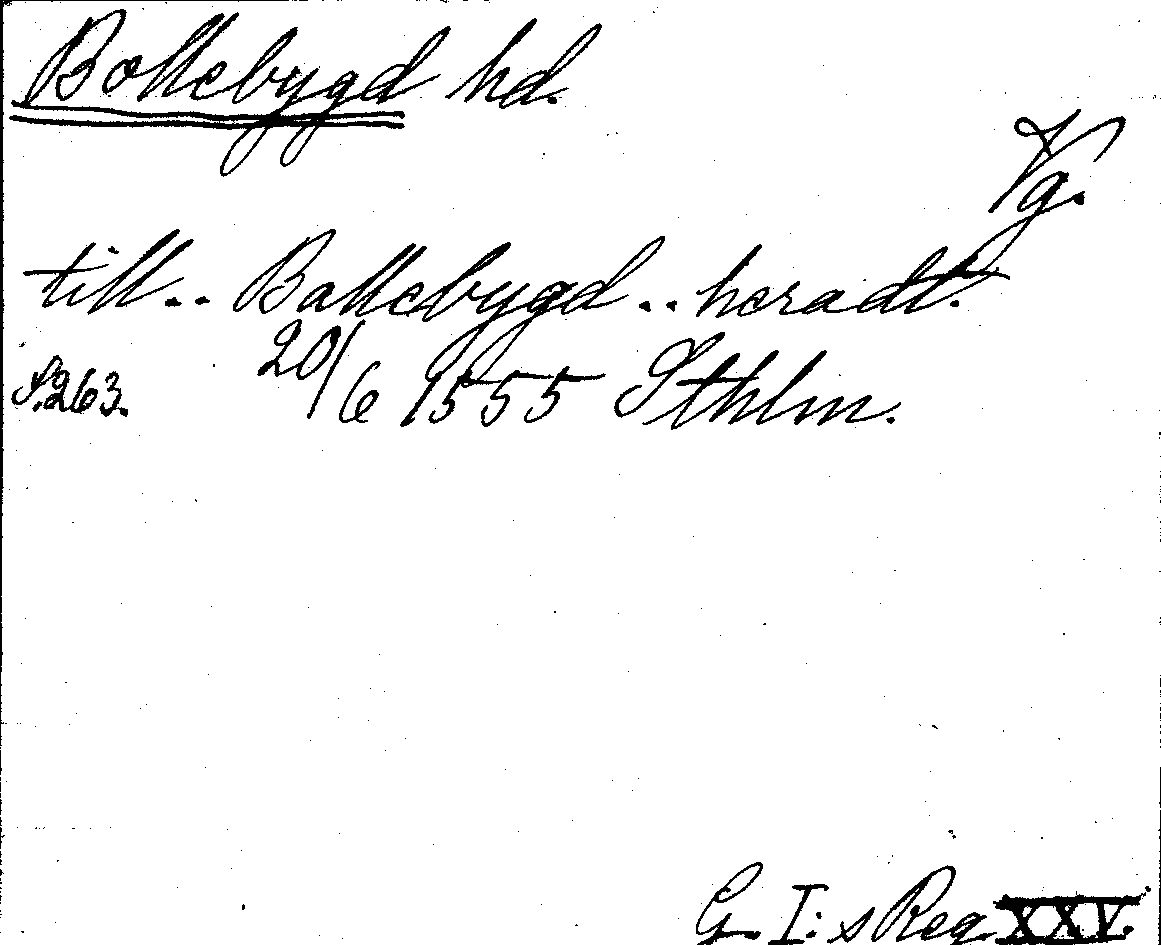 Bollebygd hd.
Vg.
till.. Ballebygd.. heradt.
S. 263. 20/6 1555 Sthlm.
G. I:s Reg. XXV.